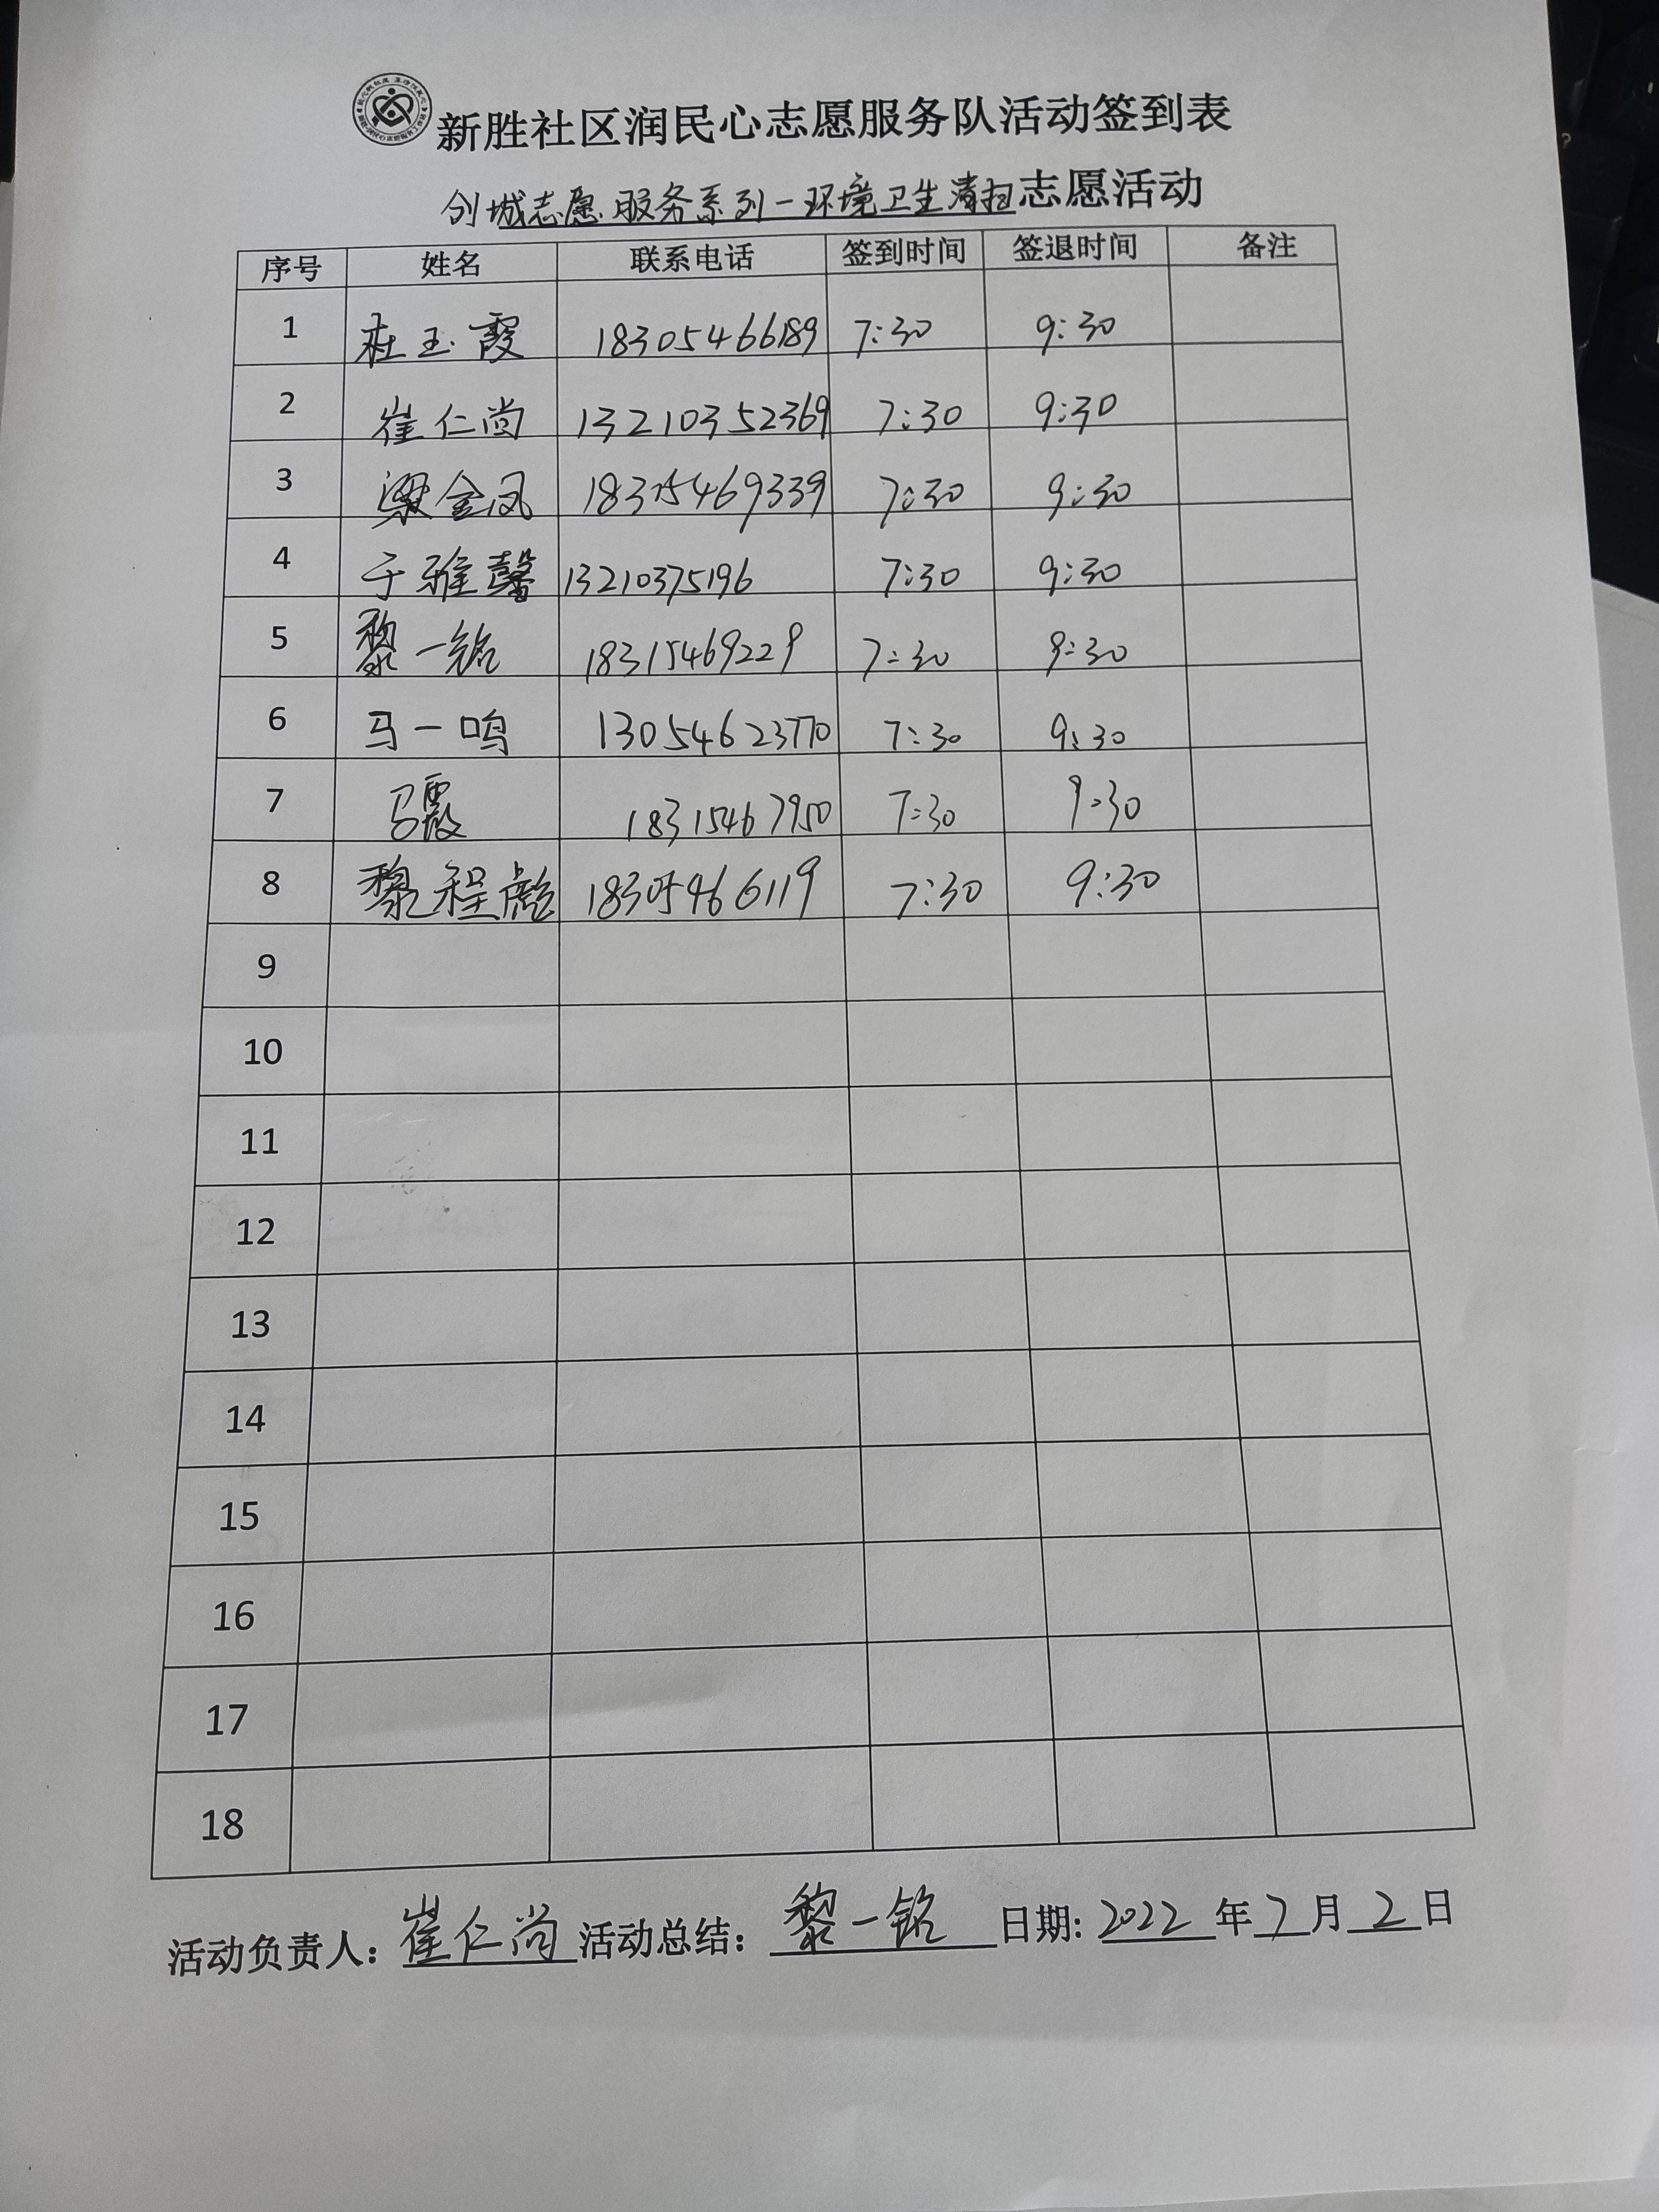 新胜社区润民心志愿服务队活动签到表
创城志愿服务系列-环境卫生清扫志愿活动
序号 姓名 联系电话 签到时间 签退时间 备注
1 杜玉霞 18305466189 7:30 9:30
2 崔仁尚 13210352369 7:30 9:30
3 梁金凤 18315469339 7:30 9:30
4 于雅馨 13210375196 7:30 9:30
5 黎一铭 18315469229 7:30 9:30
6 马一鸣 13054623770 7:30 9:30
7 马霞 18315467950 7:30 9:30
8 黎程彪 18305466119 7:30 9:30
9
10
11
12
13
14
15
16
17
18
活动负责人: 崔仁尚 活动总结: 黎一铭 日期: 2022 年 7 月 2 日